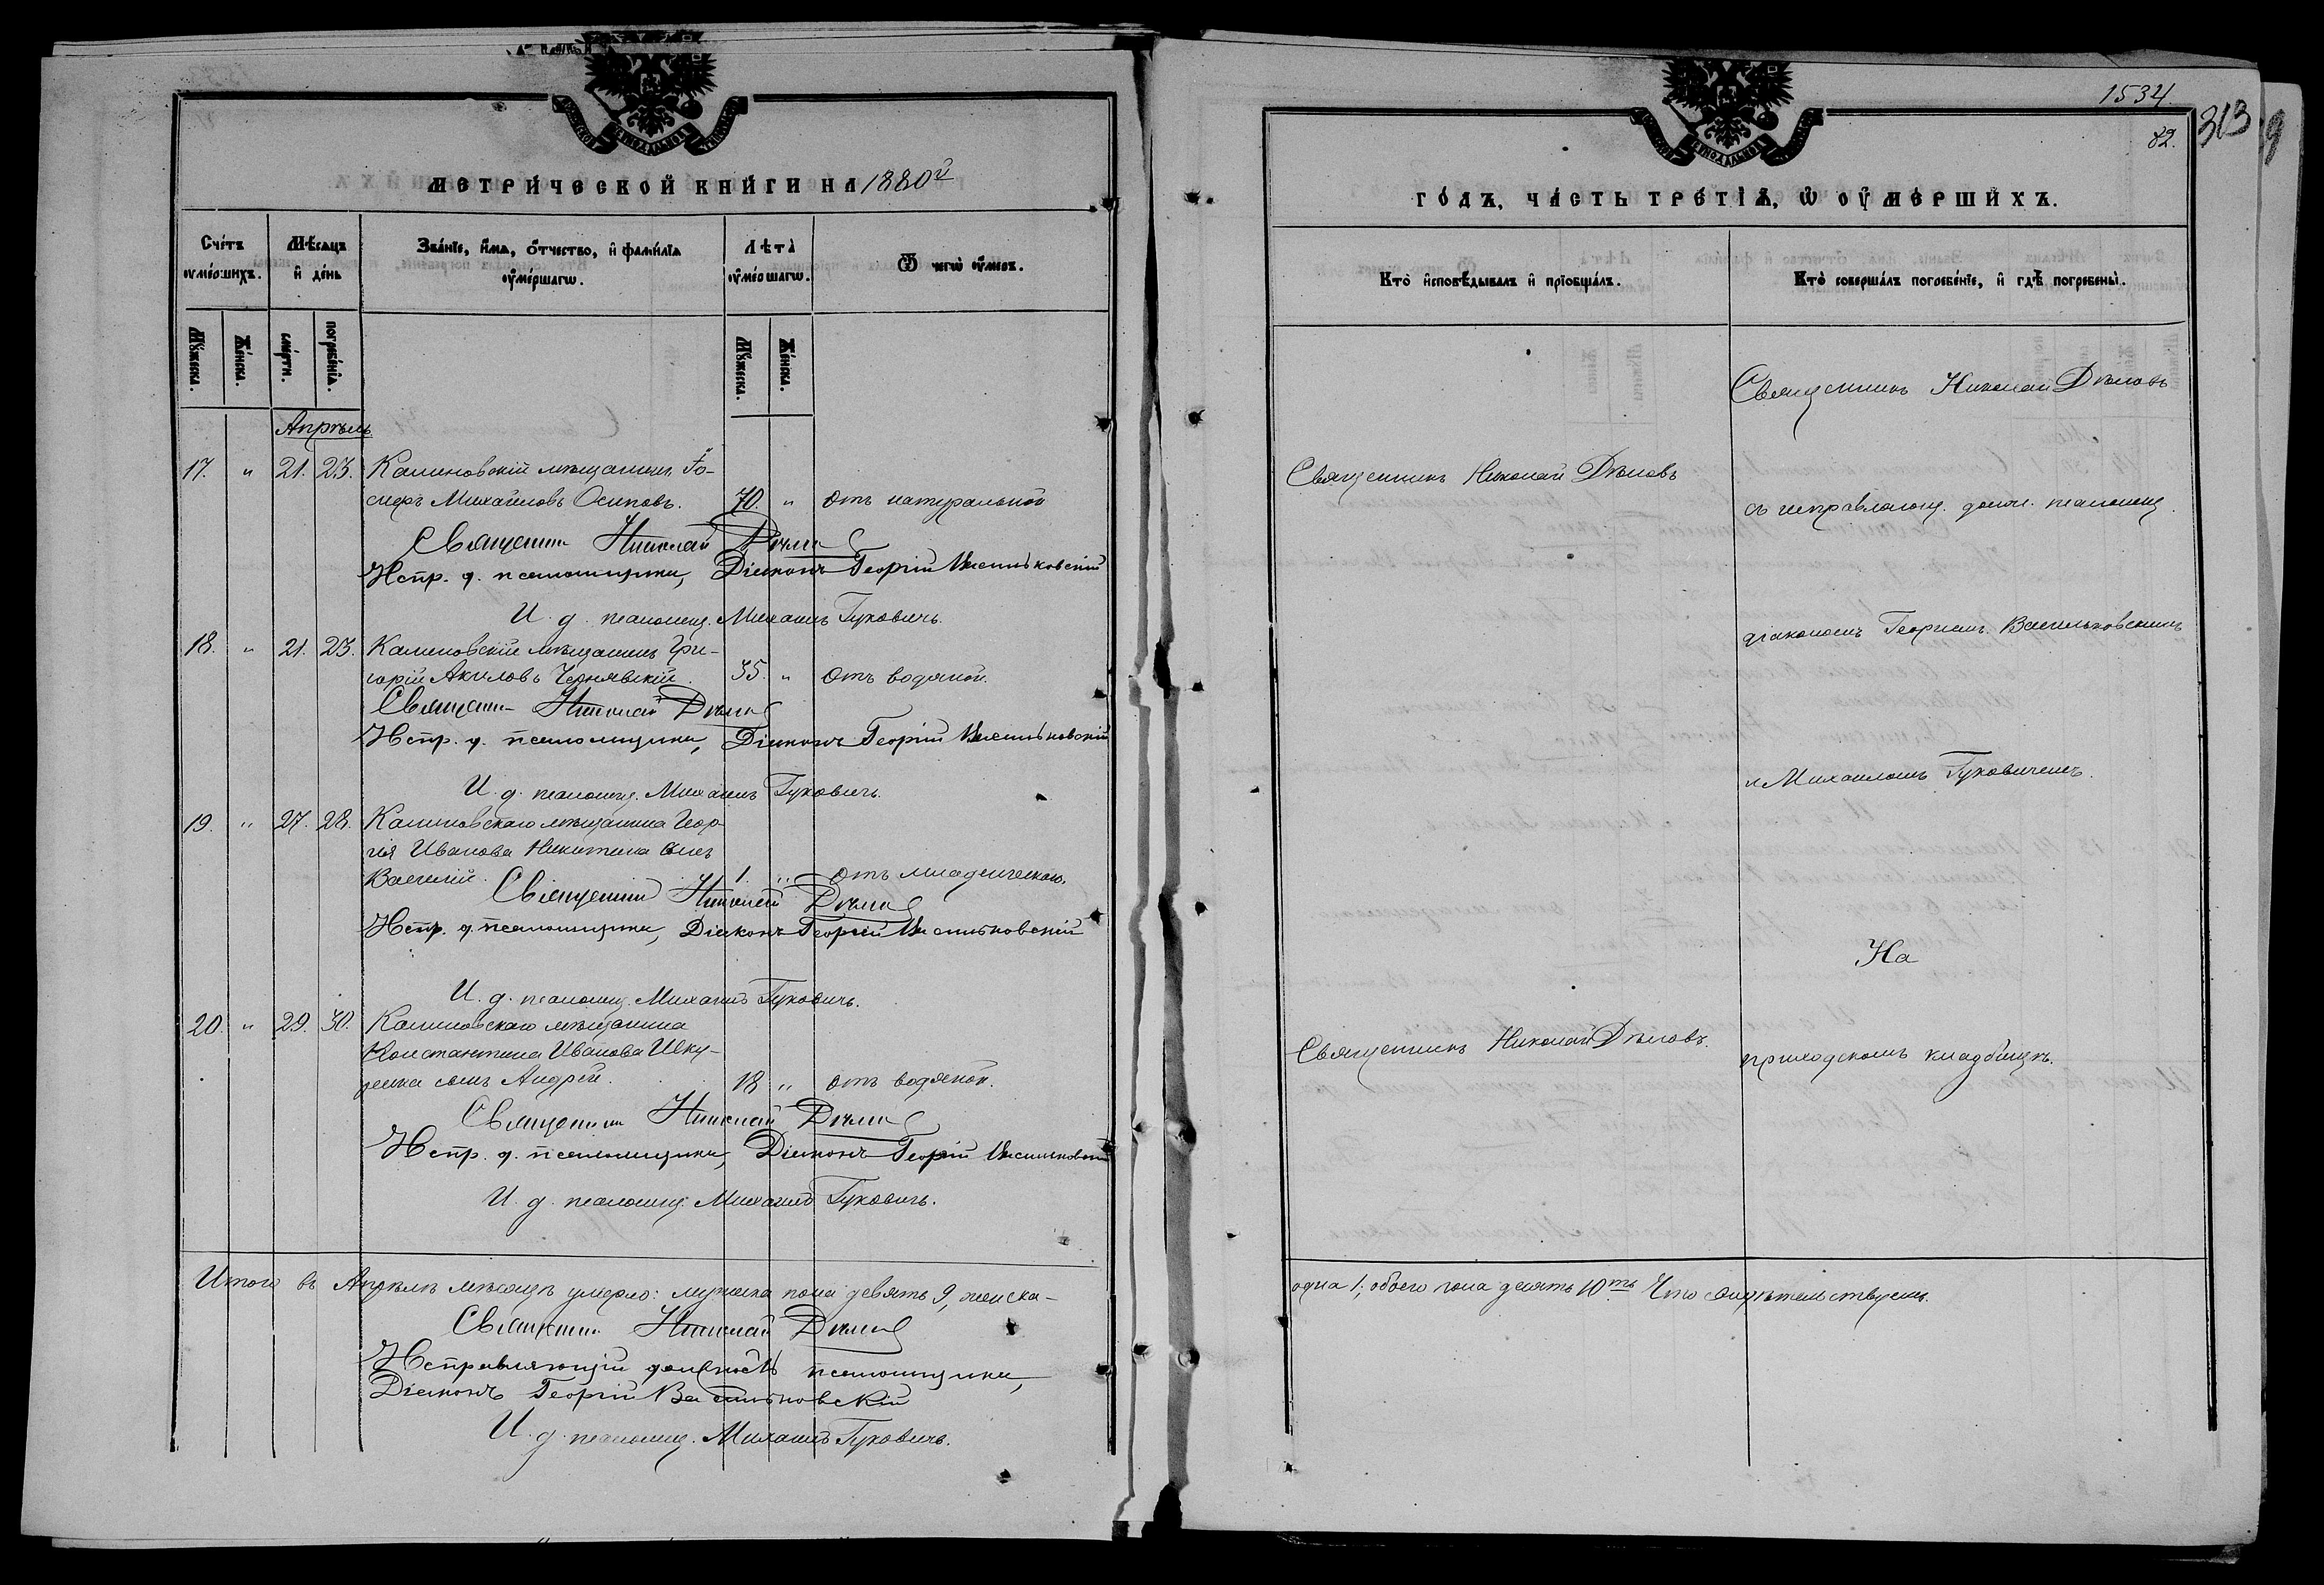 МЕТРИ́ЧЕСКОЙ КНИ́ГИ НА 1880й
Сче́тъ ᲂу҆ме́ршихъ.
Мѣ́сяцъ и҆ де́нь
Зва́нїе, и҆́мѧ, ѻ҆́тчество, и҆ фами́лїѧ ᲂу҆ме́ршагѡ.
Лѣта̀ ᲂу҆ме́ршагѡ.
Ѿ чегѡ̀ ᲂу҆́меръ.
Мꙋ́жеска.
Же́нска.
сме́рти.
погребе́нїѧ.
Мꙋ́жеска.
Же́нска.
Апрѣль
17. " 21. 23. Калиновскій мѣщанинъ Іо-
сифъ Михайловъ Осиповъ. 70. " отъ натуральной
Священникъ Николай Дѣлов
Испр. д. псаломщика, Діаконъ Георгій Васильковскій
И. д. псаломщ. Михаилъ Гуковичъ.
18. " 21. 23. Калиновскій мѣщанинъ Гри-
горій Акиловъ Чернявскій. 35. " отъ водяной.
Священникъ Николай Дѣлов
Испр. д. псаломщика, Діаконъ Георгій Васильковскій
И. д. псаломщ. Михаилъ Гуковичъ.
19. " 27. 28. Калиновскаго мѣщанина Геор-
гія Иванова Никитина сынъ
Василій. 1. " отъ младенческой.
Священникъ Николай Дѣлов
Испр. д. псаломщика, Діаконъ Георгій Васильковскій
И. д. псаломщ. Михаилъ Гуковичъ.
20. " 29. 30. Калиновскаго мѣщанина
Константина Иванова Шку-
сынъ Андрей. 18 " отъ водяной.
Священникъ Николай Дѣлов
Испр. д. псаломщика, Діаконъ Георгій Васильковскій
И. д. псаломщ. Михаилъ Гуковичъ.
Итого въ Апрѣлѣ мѣсяцѣ умерло: мужска пола девять 9, женска-
Священникъ Николай Дѣлов
Исправляющій должность псаломщика,
Діаконъ Георгій Васильковскій
И. д. псаломщ. Михаилъ Гуковичъ.
1534.
82.
313
9
ГО́ДЪ, ЧА́СТЬ ТРЕ́ТІѦ, Ѡ҆ ОУ҆МЕ́РШИХЪ.
Кто̀ и҆сповѣ́дывалъ и҆ прїобща́лъ.
Кто̀ соверша́лъ погребе́нїе, и҆ гдѣ̀ погребены̀.
Священникъ Николай Дѣловъ
Священникъ Николай Дѣловъ
съ исправляющ. должн. псаломщ.
діакономъ Георгіемъ Васильковскимъ
и Михаиломъ Гуковичемъ.
На
Священникъ Николай Дѣловъ.
приходскомъ кладбищѣ.
одна 1; обоего пола десять 10ть. Что свидѣтельствуемъ.